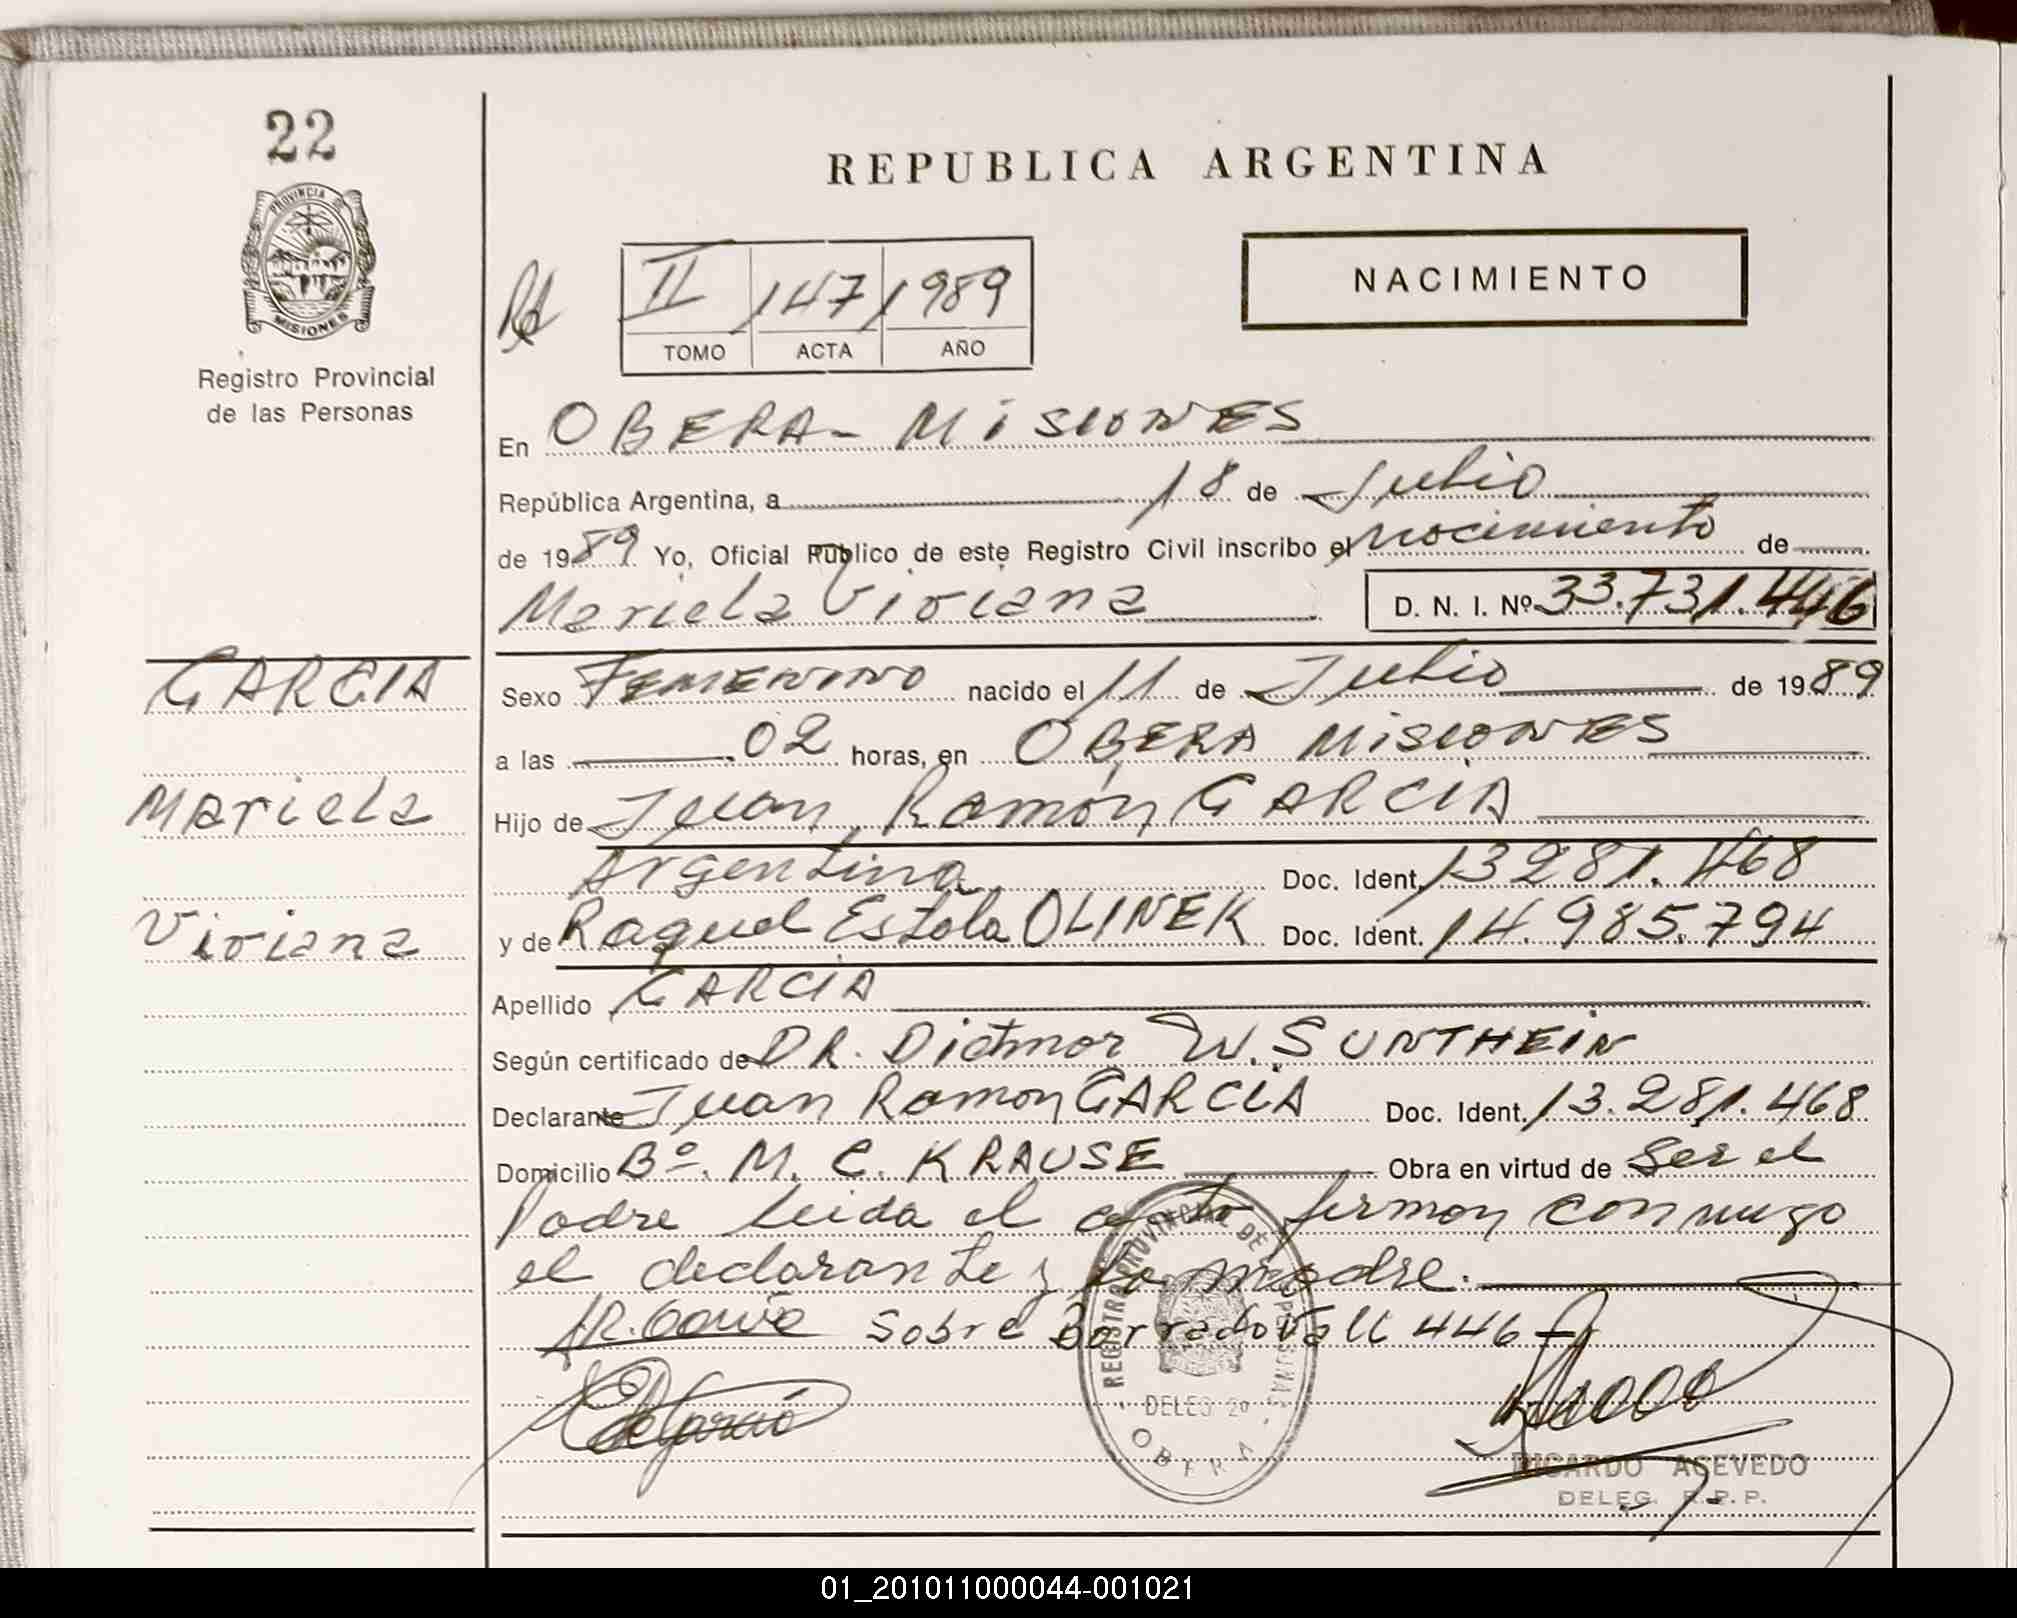 22
PROVINCIA DE
MISIONES
Registro Provincial
de las Personas
GARCIA
Mariela
Viviana
REPUBLICA ARGENTINA
II 147 1989
TOMO ACTA AÑO
NACIMIENTO
En OBERA - MISIONES
República Argentina, a 18 de Julio
de 1989 Yo, Oficial Público de este Registro Civil inscribo el nacimiento de
Mariela Viviana D. N. I. Nº 33.731.446
Sexo FEMENINO nacido el 11 de Julio de 1989
a las 02 horas, en OBERA MISIONES
Hijo de Juan Ramón GARCIA
Argentina Doc. Ident. 13281.468
y de Raquel Estela OLINEK Doc. Ident. 14.985.794
Apellido GARCIA
Según certificado de DR. Dietmar W. SUNTHEIN
Declarante Juan Ramon GARCIA Doc. Ident. 13.281.468
Domicilio Bº. M. C. KRAUSE Obra en virtud de ser el
Padre leida el acta firman conmigo
el declarante y la madre.
Sobre Borrado Vale 446
REGISTRO PROVINCIAL DE LAS PERSONAS
DELEG 2º
OBERA
RICARDO ACEVEDO
DELEG. R.P.P.
01_201011000044-001021